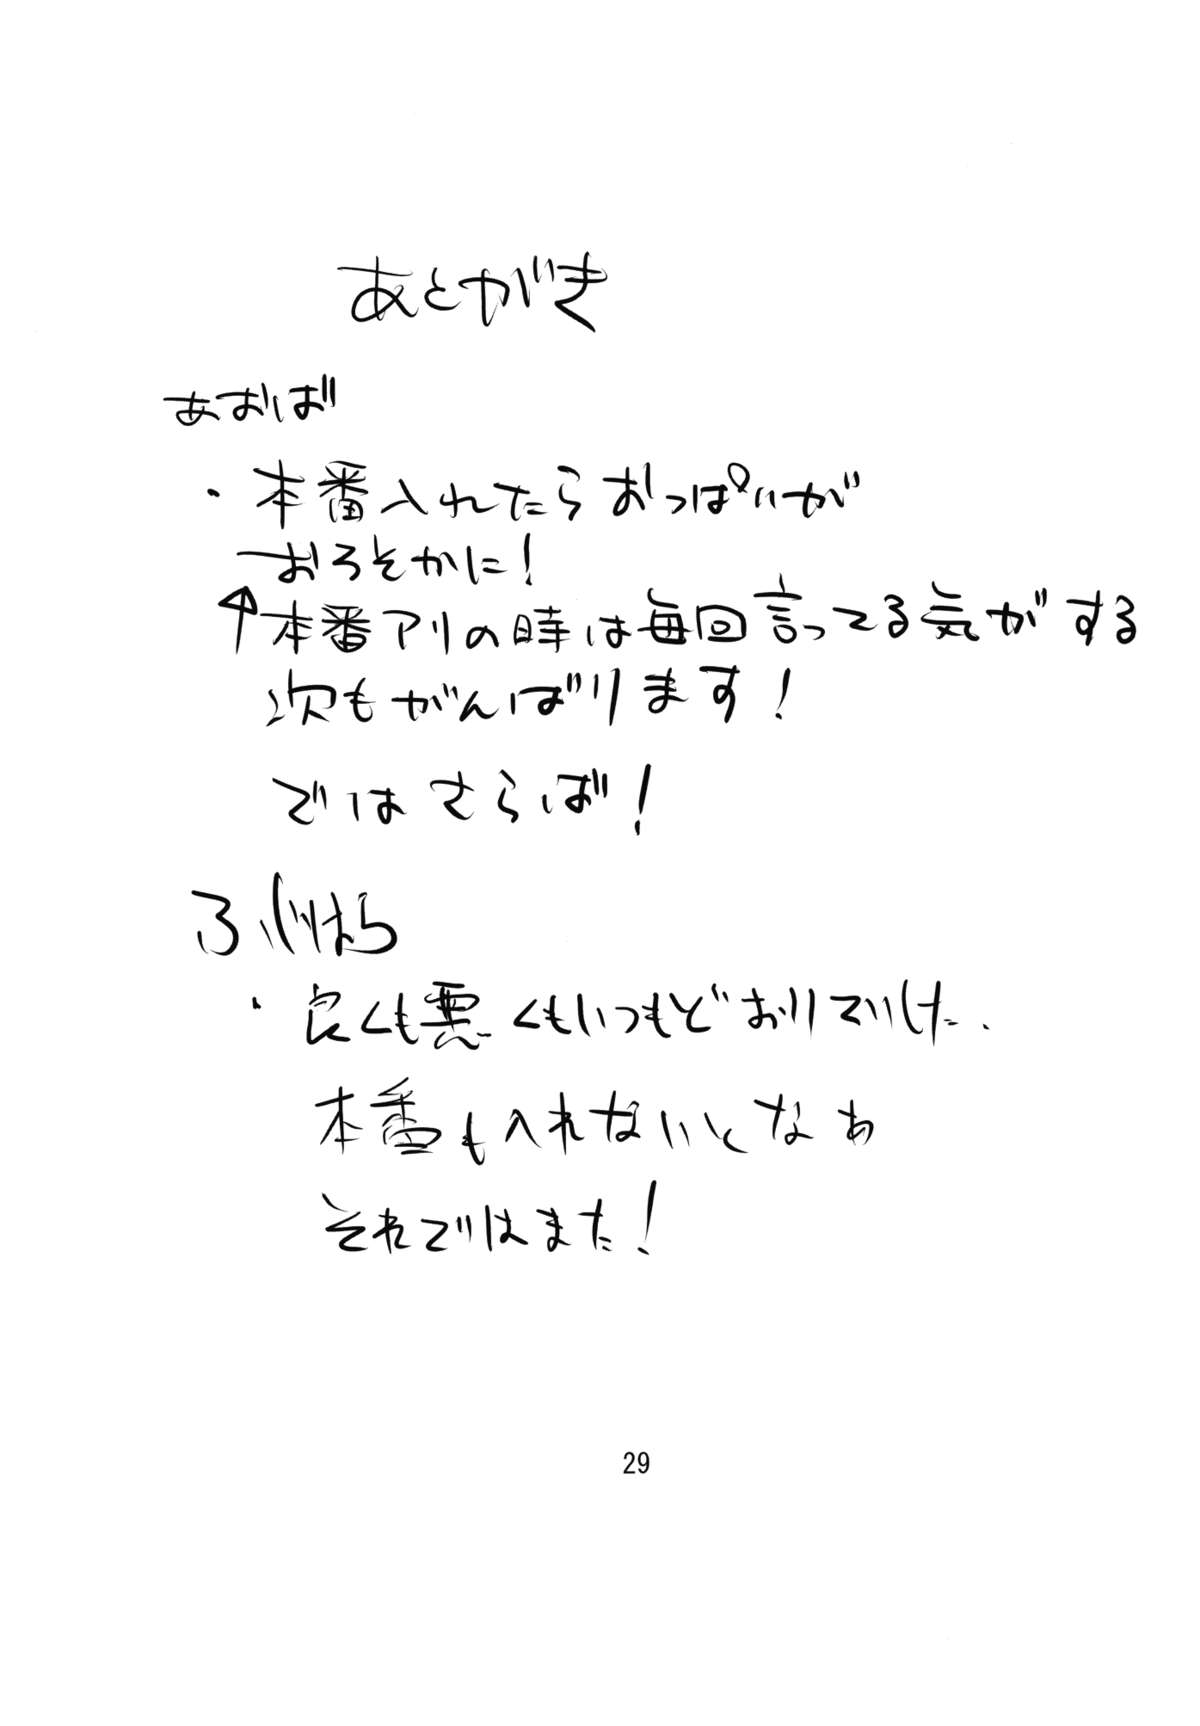 あとがき
あおば
・本番入れたらおっぱいが
おろそかに！
↑本番アリの時は毎回言ってる気がする
次もがんばります！
ではさらば！
ふじはら
・良くも悪くもいつもどおりでした.
本番も入れないとなぁ
それではまた！
29